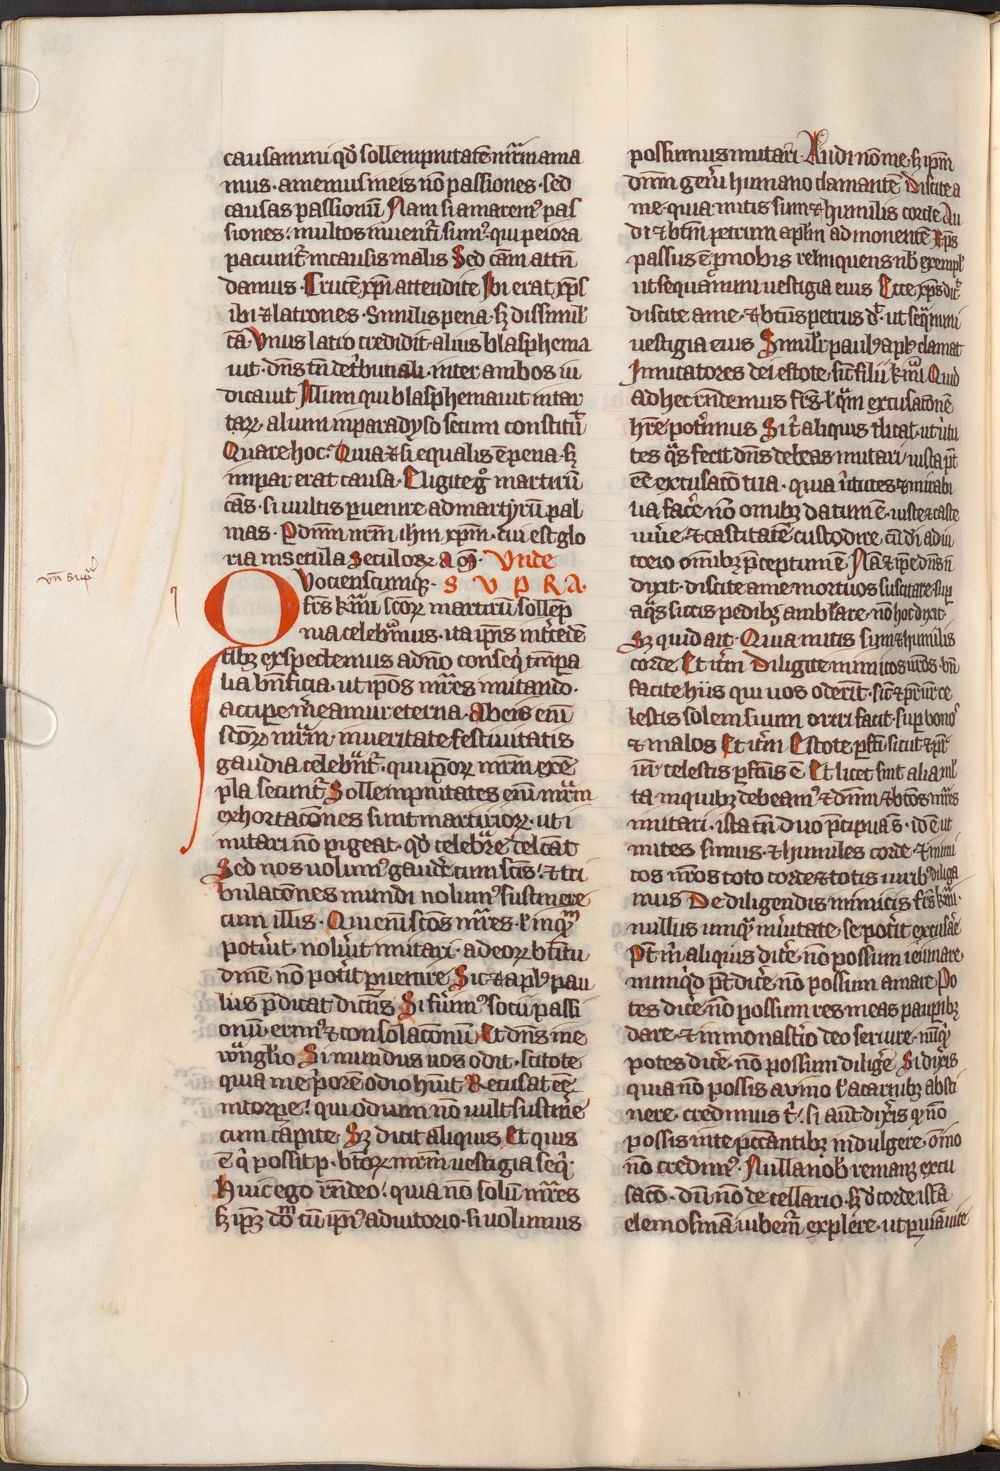 causam mi qd̕ sollempnitatē mr̄m ama
mus · amemus in eis nō passiones · sed
causas passionū Nam si amarem᷒ pas
siones / multos inuentᷣi sum᷒ · qui peiora
paciunt᷑ in causis malis Sed cām attn̄
damus · Crucē xp̄i attendite Ibi erat xp̄s
ibi ⁊ latrones · Similis pena · sꝫ dissimil̕
cā · Vnus latro credidit · alius blasphema
uit · dn̄s tn̄ de tᷣbunali · inter ambos iu
dicauit Illum qui blasphemauit in tar
tarꝝ · alium in paradyso secum constituᷓ
Quare hoc · Quia ⁊ si equalis ē pena · sꝫ
inpar erat causa · Eligite gͦ martirū
cās · si uultis ꝑuenire ad martyrū pal
mas · P dnm̄ nr̄m ihm̄ xp̄m · cui est glo
ria in secula seculoꝝ · am̄ · Vnde
Quocienscumqꝫ · SUPRA ·
fr̄s kmi scoꝝ martirū sollep̄
nia celebᷓmus · ita ip̄is int̕cedē
tibꝫ exspectemus a dn̄o conseqͥ tm̄pa
lia bn̄ficia · ut ip̄os mr̄es imitando ·
accipe m̕eamur eterna · Ab eis eni
scōꝝ mr̄m · in ueritate festiuitatis
gaudia celebᷓnt᷑ · qui ip̄oꝝ mr̄m exē
pla secunt᷑ Sollempnitates eni mr̄m
exhortacōnes sunt martirioꝝ · ut i
mitari nō pigeat · qd̕ celebᷓre delc̄at
Sed nos uolum᷒ gaud̕e cum scīs / ⁊ tri
bulacōnes mundi nolum᷒ sustinere
cum illis · Qui eni scōs mr̄es · ī inqͣm
potu̕it · nolu̕it imitari · ad eoꝝ bt̄itu
dinē nō pot̕it ꝑuenire Sic ⁊ apl̕s pau
lus p̄dicat dicēs Si fu̕im᷒ socii passi
onū erim᷒ ⁊ consolacōnū Et dn̄s in e
wāngl̕io Si mundus uos odit · scitote
quia me p̕orē odio huit Recusat eē
in corpe / qui odium nō uult sustin̕e
cum capite Sꝫ dicit aliquis Et quis
ē qͥ possit ꝑ · bt̄oꝝ mr̄m uestigia seqͥ ·
Huic ego rn̄deo / quia nō solū mr̄es
sꝫ ip̄ꝫ dm̄ cū ip̄i᷒ adiutorio · si uolumus
possumus imitari · Audi nō me · sꝫ ip̄m
dnm̄ gen̕i humano clamantē Discite a
me · quia mitis sum ⁊ humilis corde Au
di ⁊ bt̄m petrum aplm̄ admonentē Xp̄s
passus ē ꝓ nobis relinquens nb̕ exempl̕
ut sequamini uestigia eius Ecce xp̄s dic̄
discite a me · ⁊ bt̄us petrus dͬ · ut seqͣmini
uestigia eius Simil̕r paul᷒ apl᷒ clamat
Imitatores dei estote · sic̄ filii kmi Quid
ad hec rn̄demus fr̄s · ul̕ qͣm excusacōnē
hr̄e pot̕imus Si t̕ aliquis dicat · ut uirtu
tes qͣs fecit dn̄s debeas imitari iusta pt̄
eē excusacō tua · quia uirtutes ⁊ mirabi
lia fac̕e nō omībꝫ datum ē · iuste ⁊ caste
uiu̕e · ⁊ castitatē custodire cū dī adiu
torio omībꝫ p̄ceptum ē Nā ⁊ ip̄e dn̄s n̄
dixit · discite a me mortuos suscitare · sup
aqͣs siccis pedibꝫ ambl̕are · nō hoc dixit ·
Sꝫ quid ait · Quia mitis sum ⁊ humilis
corde Et it̕m Diligite inimicos ur̄os · bn̄
facite hiis qui uos oder̄t · sic̄ ⁊ pr̄ ur̄ ce
lestis solem suum oriri facit · sup bonos
⁊ malos Et it̕m Estote ꝑfc̄i sicut ⁊ pr̄
ur̄ celestis ꝑfc̄us ē Et licet sint alia ml̕
ta in quibꝫ debeam᷒ ⁊ dnm̄ ⁊ bt̄os mr̄es
imitari · ista tn̄ duo p̄cipua s̄ · id ē ut
mites simus · ⁊ humiles corde · ⁊ inimi
cos nr̄os toto corde ⁊ totis uiribꝫ diliga
mus De diligendis inimicis fr̄s kmi ·
nullus umqͣm in u̕itate · se pot̕it excusāre
Pt̄ m̕ aliquis dic̕e · nō possum ieiunare ·
numqͥd pt̄ dic̕e · nō possum amare Po
tes dic̕e · nō possum res meas pauꝑibꝫ
dare · ⁊ in monast̕io deo seruire · nūqͥd
potes dic̕e · nō possum dilig̕e Si dix̕is
quia nō possis a uino ul̕ a carnibꝫ absti
nere · credimus t̕ · si aut̄ dix̕is qꝫ nō
possis in te peccantibꝫ indulgere · omīo
nō credim᷒ · Nulla nob̕ remanꝫ excu
sacō · dū nō de cellario · sꝫ de corde istā
elemosinā iubem᷑ explere · ut ꝑ uniu̕ite
vn̄ supᷓ